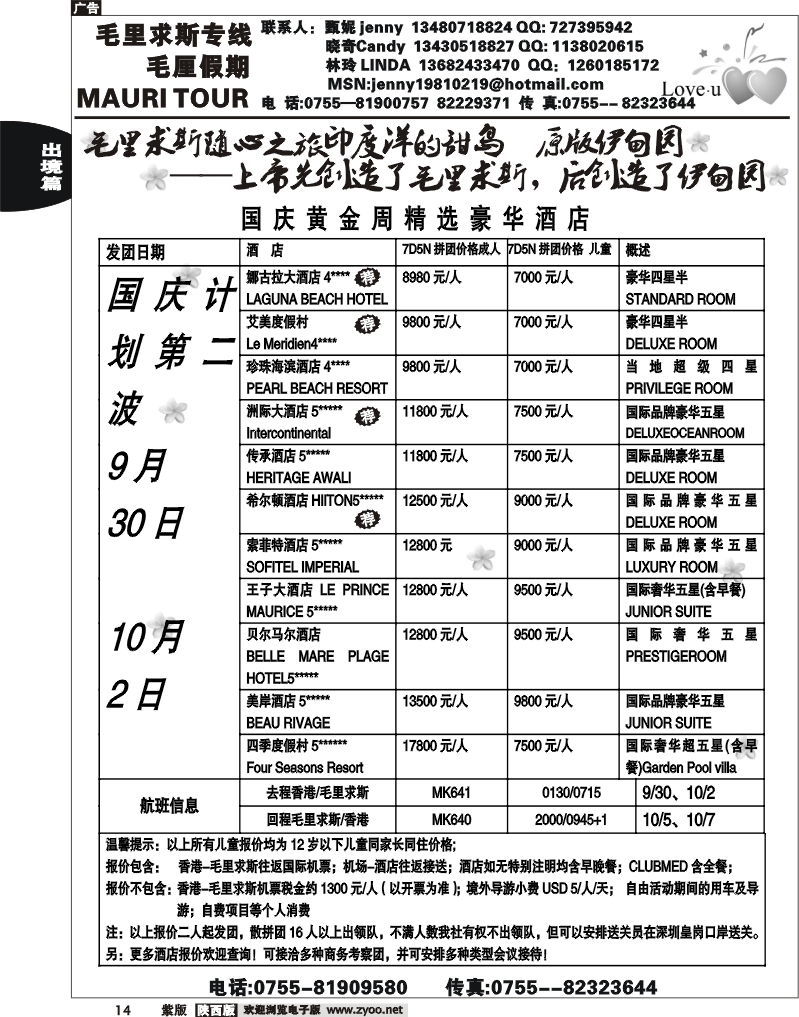 广告
毛里求斯专线
毛厘假期
MAURI TOUR
联系人：甄妮 jenny 13480718824 QQ: 727395942
晓奇Candy 13430518827 QQ: 1138020615
林玲 LINDA 13682433470 QQ：1260185172
MSN:jenny19810219@hotmail.com
电 话:0755—81900757 82229371 传 真:0755-- 82323644
Love·u
出境篇
毛里求斯随心之旅印度洋的甜岛 原版伊甸园
——上帝先创造了毛里求斯，后创造了伊甸园
国庆黄金周精选豪华酒店
发团日期 酒 店 7D5N 拼团价格成人 7D5N 拼团价格 儿童 概述
国庆计划第二波
9月30日
10月2日
娜古拉大酒店 4**** 荐 8980 元/人 7000 元/人 豪华四星半
LAGUNA BEACH HOTEL STANDARD ROOM
艾美度假村 荐 9800 元/人 7000 元/人 豪华四星半
Le Meridien4**** DELUXE ROOM
珍珠海滨酒店 4**** 9800 元/人 7000 元/人 当地超级四星
PEARL BEACH RESORT PRIVILEGE ROOM
洲际大酒店 5***** 荐 11800 元/人 7500 元/人 国际品牌豪华五星
Intercontinental DELUXEOCEANROOM
传承酒店 5***** 11800 元/人 7500 元/人 国际品牌豪华五星
HERITAGE AWALI DELUXE ROOM
希尔顿酒店 HIITON5***** 12500 元/人 9000 元/人 国际品牌豪华五星
荐 DELUXE ROOM
索菲特酒店 5***** 12800 元 9000 元/人 国际品牌豪华五星
SOFITEL IMPERIAL LUXURY ROOM
王子大酒店 LE PRINCE 12800 元/人 9500 元/人 国际奢华五星(含早餐)
MAURICE 5***** JUNIOR SUITE
贝尔马尔酒店 12800 元/人 9500 元/人 国际奢华五星
BELLE MARE PLAGE PRESTIGEROOM
HOTEL5*****
美岸酒店 5***** 13500 元/人 9800 元/人 国际品牌豪华五星
BEAU RIVAGE JUNIOR SUITE
四季度假村 5****** 17800 元/人 7500 元/人 国际奢华超五星(含早
Four Seasons Resort 餐)Garden Pool villa
航班信息
去程香港/毛里求斯 MK641 0130/0715 9/30、10/2
回程毛里求斯/香港 MK640 2000/0945+1 10/5、10/7
温馨提示：以上所有儿童报价均为 12 岁以下儿童同家长同住价格；
报价包含： 香港–毛里求斯往返国际机票；机场–酒店往返接送；酒店如无特别注明均含早晚餐；CLUBMED 含全餐；
报价不包含：香港–毛里求斯机票税金约 1300 元/人 ( 以开票为准 )；境外导游小费 USD 5/人/天； 自由活动期间的用车及导
游；自费项目等个人消费
注：以上报价二人起发团，散拼团 16 人以上出领队，不满人数我社有权不出领队，但可以安排送关员在深圳皇岗口岸送关。
另：更多酒店报价欢迎查询！可接洽多种商务考察团，并可安排多种类型会议接待！
电话:0755-81909580 传真:0755--82323644
14 紫版 陕西版 欢迎浏览电子版 www.zyoo.net